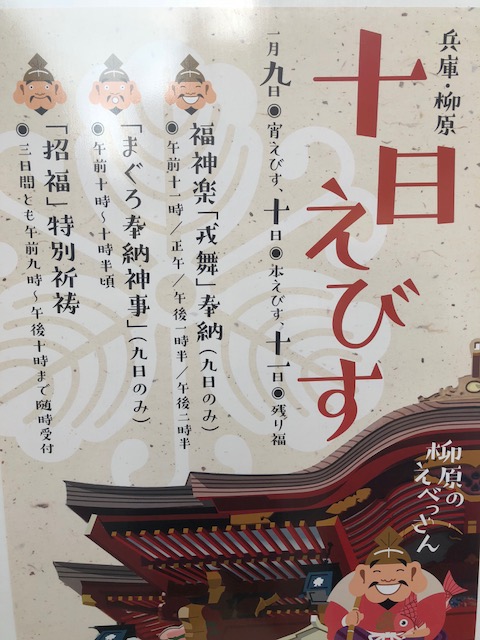 兵庫・柳原
十日えびす
一月九日◉宵えびす、十日◉本えびす、十一日◉残り福
福神楽「戎舞」奉納(九日のみ)
◉午前十一時/正午/午後一時半/午後二時半
「まぐろ奉納神事」(九日のみ)
◉午前十時~十時半頃
「招福」特別祈祷
◉三日間とも午前九時~午後十時まで随時受付
柳原の
えべっさん